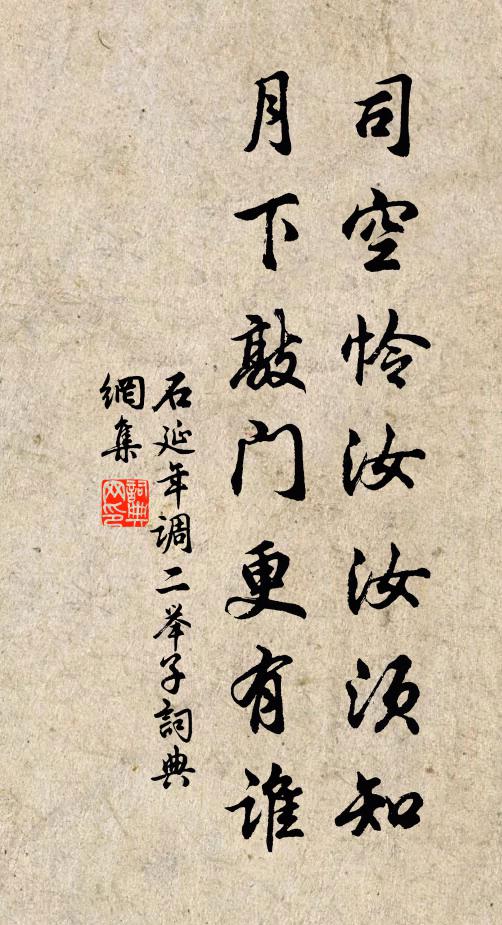 司空怜汝汝须知
月下敲门更有谁
石延年调二举子詞典
網集
詞典
网印